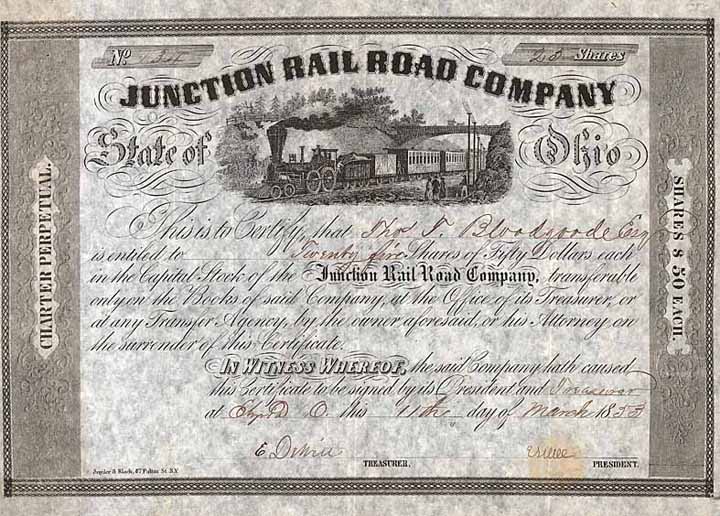 No. 134 25 Shares
JUNCTION RAIL ROAD COMPANY
State of Ohio
CHARTER PERPETUAL.
SHARES $ 50 EACH.
This is to Certify, that Thos T. Bloodgoode Esq
is entitled to Twenty five Shares of Fifty Dollars each
in the Capital Stock of the Junction Rail Road Company, transferable
only on the Books of said Company, at the Office of its Treasurer, or
at any Transfer Agency, by the owner aforesaid, or his Attorney, on
the surrender of this Certificate.
IN WITNESS WHEREOF, the said Company hath caused
this Certificate to be signed by its President and Treasurer
at O. this 11th day of March 1853
E. DeWitt
TREASURER, PRESIDENT.
Snyder & Black, 87 Fulton St. N.Y.